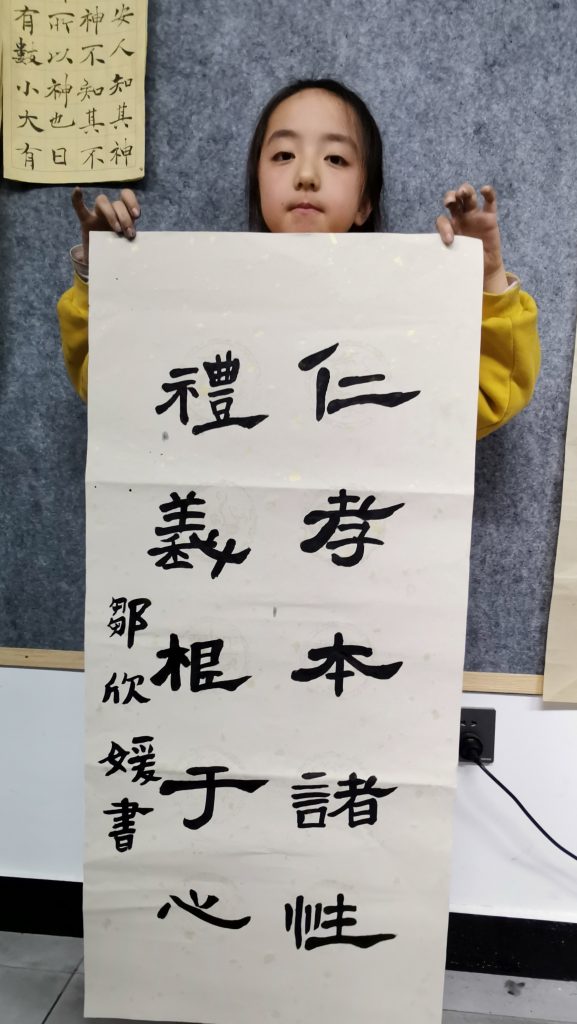 仁孝本諸性
禮義根于心
鄒欣媛書
安人知其神
神不知其不
所以神也日
有數小大有